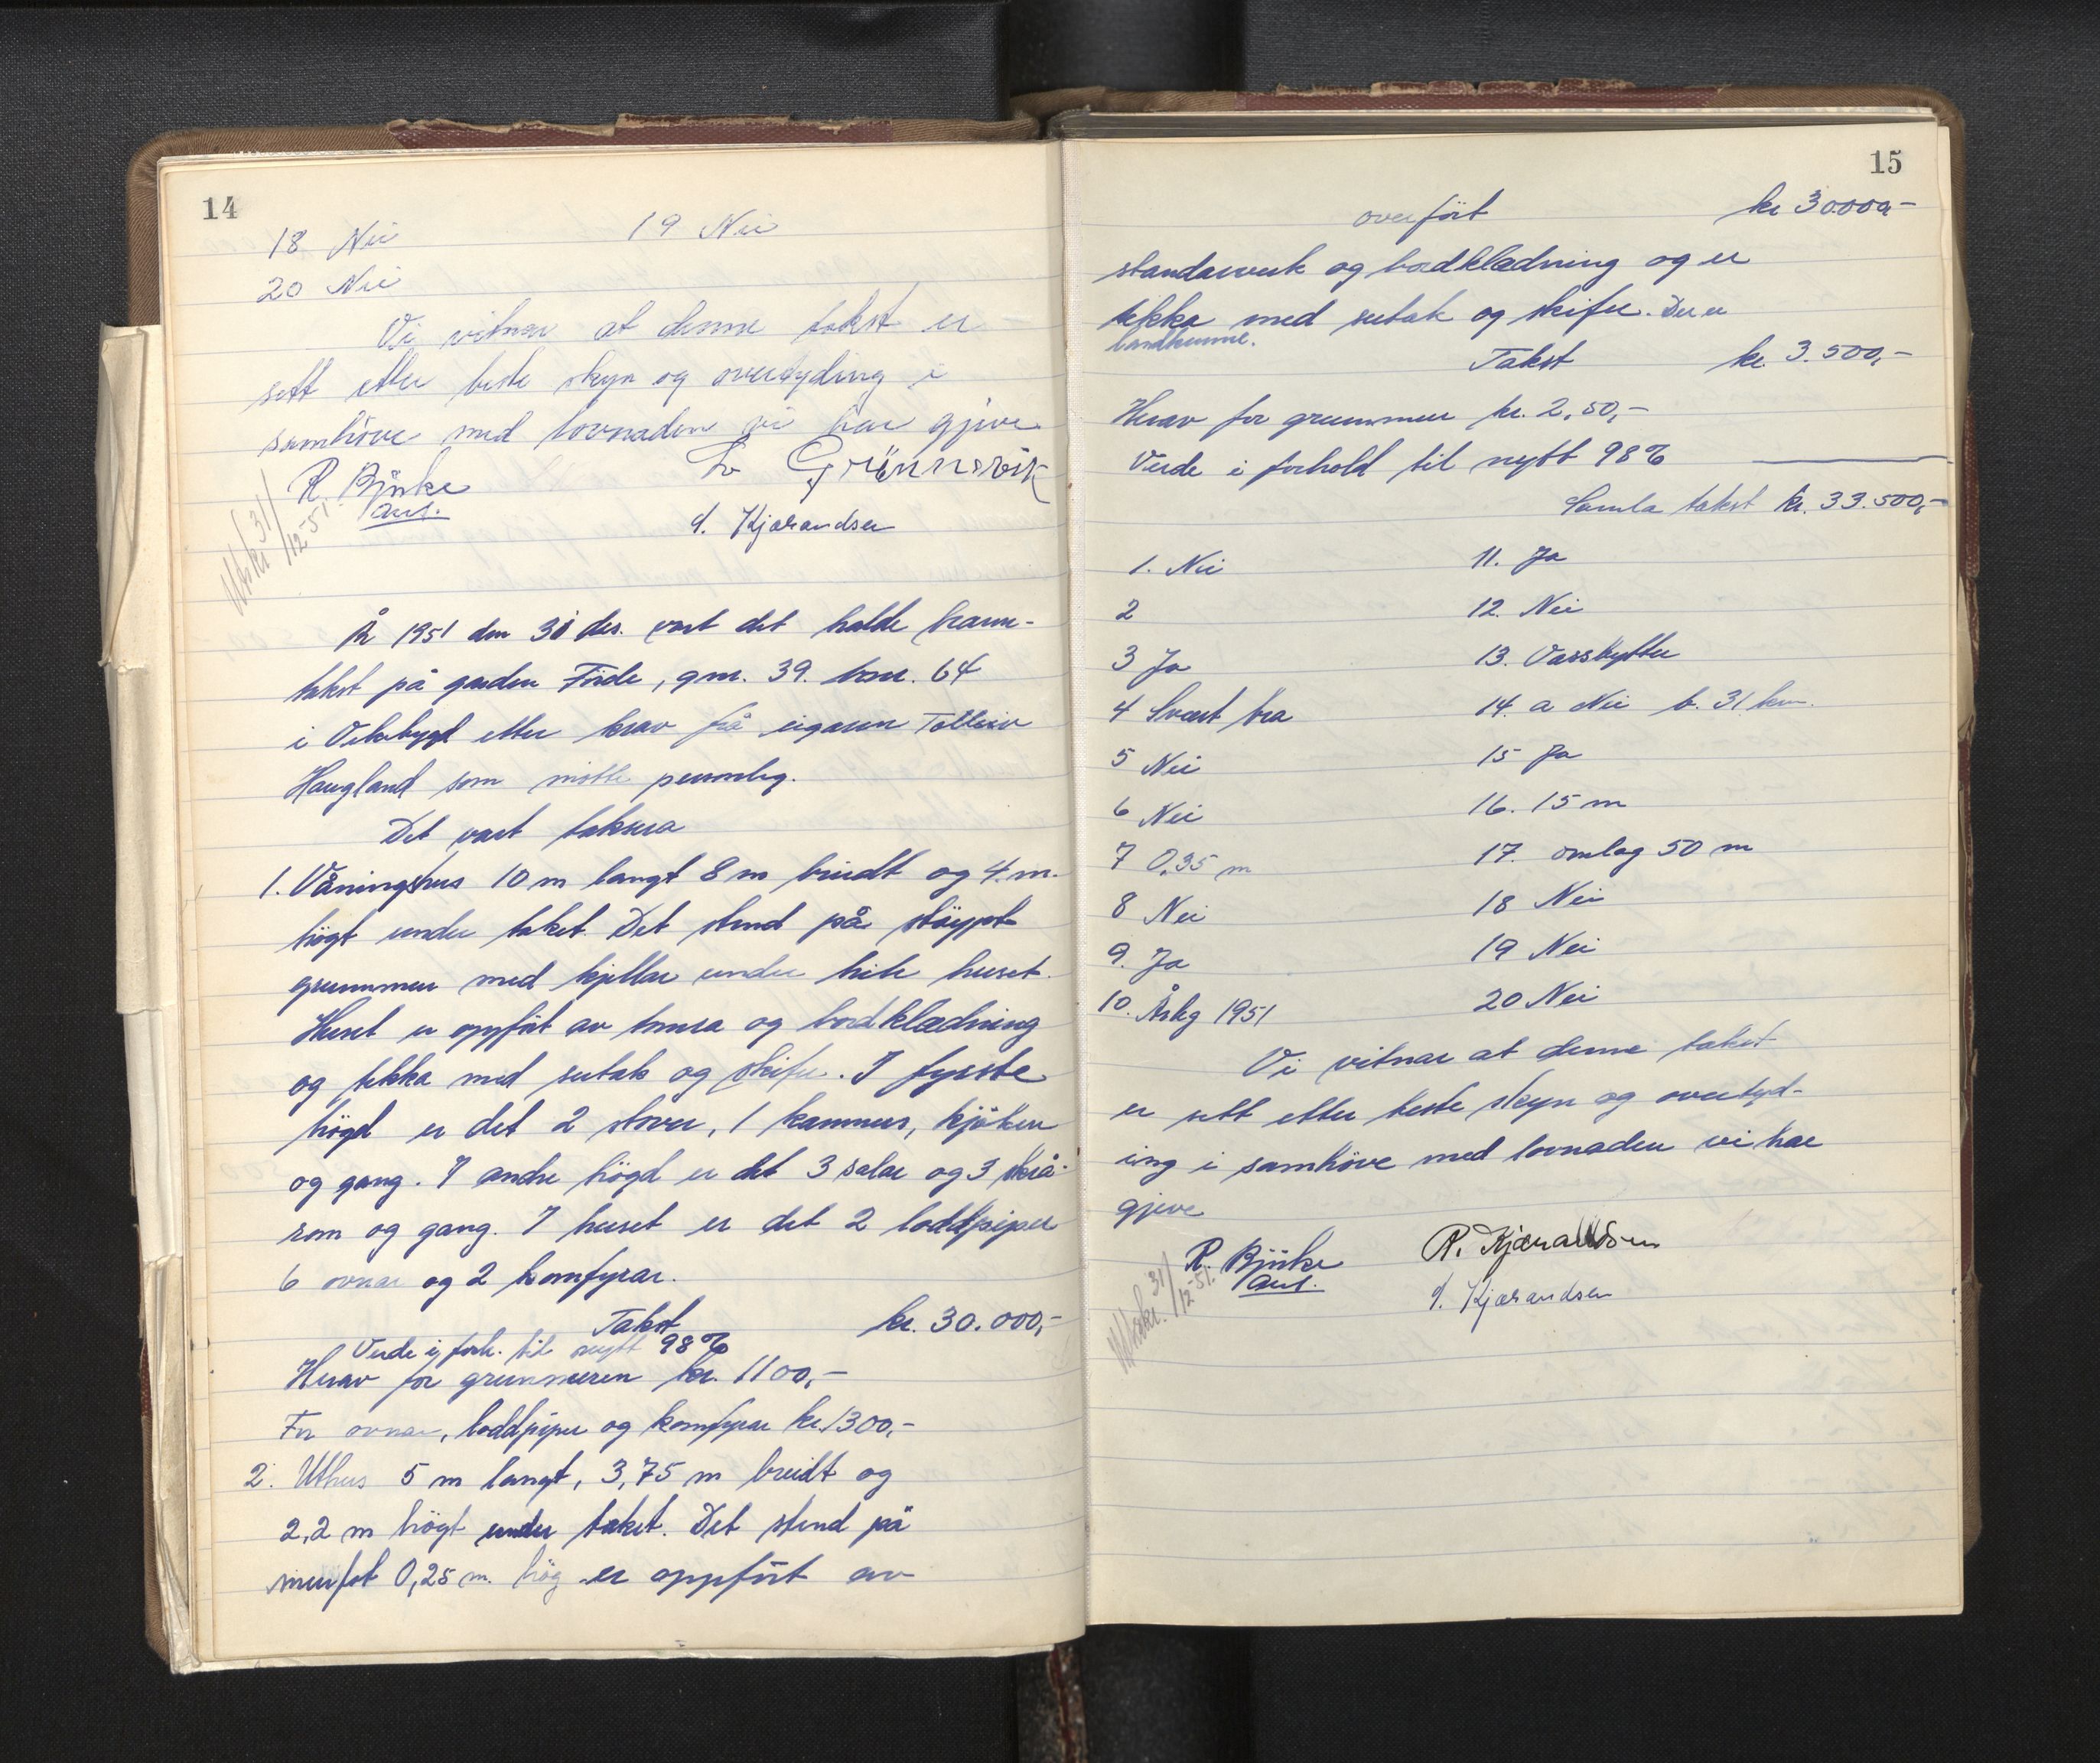 14
18 Nei 19 Nei
20 Nei
Vi vitnar at denne takst er
sett etter beste skyn og overtyding i
samhöve med lovnaden vi har gjeve
R. Björke L. Grönnsvik
S. Kjærandsen
31/12-51.
År 1951 den 31 des. vart det halde brann-
takst på garden Förde, gnr. 39. bnr. 64
i Ölsbygd etter krav frå eigaren Tolleiv
Haugland som mötte personleg.
Det vart taksera
1. Våningshus 10 m langt 8 m breidt og 4. m.
högt under taket. Det stend på stöypt
grunnmur med kjellar under heile huset.
Huset er oppfört av tømra og bordklædning
og tekka med sutak og skifer. I fyrste
högd er det 2 stover, 1 kammers, kjöken
og gang. I andre högd er det 3 salar og 3 skrå-
rom og gang. I huset er det 2 loddpiper
6 ovnar og 2 komfyrar.
Takst kr. 30.000,-
Verde i forh. til nytt 98%
Herav for grunnmuren kr. 1100,-
For ovnar, loddpiper og komfyrar kr. 1300,-
2. Uthus 5 m langt, 3,75 m breidt og
2,2 m högt under taket. Det stend på
murfot 0,25 m. hög er oppfört av
15
overfört kr 30000,-
standarverk og bordklædning og er
tekka med sutak og skifer. Der er
Takst kr. 3.500,-
Herav for grunnmur kr. 2,50,-
Verde i forhold til nytt 98%
Samla takst kr. 33.500,-
1. Nei 11. Ja
2 12. Nei
3 Ja 13. Vasskytter
4 Svært bra 14. a Nei b. 31 km.
5 Nei 15 Ja
6 Nei 16. 15 m
7 0,35 m 17. omlag 50 m
8 Nei 18 Nei
9. Ja 19 Nei
10. Årleg 1951 20 Nei
Vi vitnar at denne takst
er sett etter beste skyn og overtyd-
ing i samhöve med lovnaden vi har
gjeve
R. Björke R. Kjærandsen
S. Kjærandsen
31/12-51.